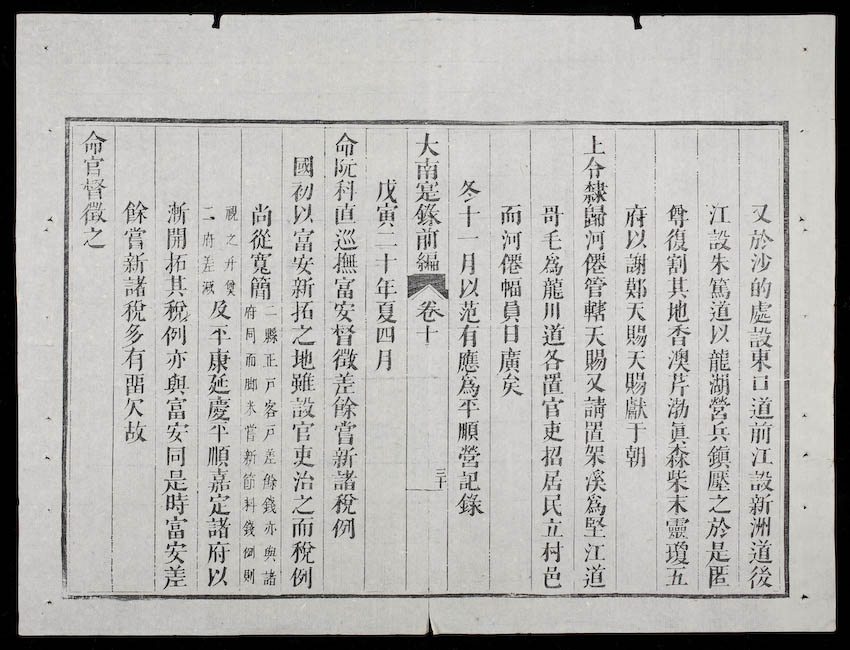 又於沙的處設東口道前江設新洲道後
江設朱篤道以龍湖營兵鎭壓之於是匿
尊復割其地香澳芹渤眞森柴末靈瓊五
府以謝鄚天賜天賜獻于朝
上令隸歸河僊管轄天賜又請置架溪爲堅江道
哥毛爲龍川道各置官吏招居民立村邑
而河僊幅員日廣矣
冬十一月以范有應爲平順營記錄
大南寔錄前編
卷十
三十
戊寅二十年夏四月
命阮科直巡撫富安督徵差餘嘗新諸稅例
國初以富安新拓之地雖設官吏治之而稅例
尚從寬簡二縣正戸客戸差餘錢亦與諸
府同而脚米嘗新節料錢例則
視之升奠
二府差減及平康延慶平順嘉定諸府以
漸開拓其稅例亦與富安同是時富安差
餘嘗新諸稅多有畱欠故
命官督徵之